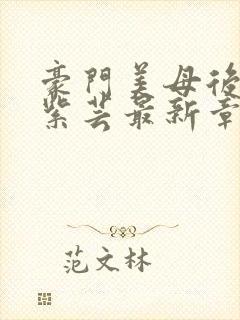 豪門美母後
紫芸最新章
范文林